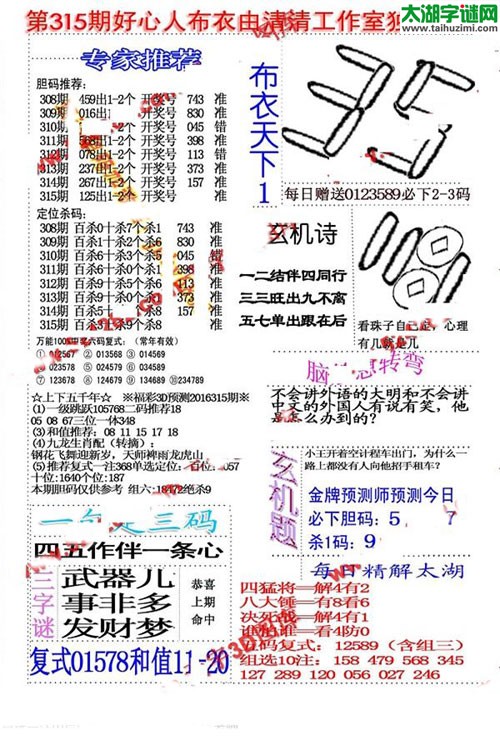 太湖字谜网
www.taihuzimi.com
第315期好心人布衣由清清工作室独
专家推荐
胆码推荐:
308期 459出1-2个 开奖号 743 准
309期 016出 开奖号 830 准
310期 1-2个 开奖号 045 错
311期 568出1-2个 开奖号 398 准
312期 078出1-2个 开奖号 113 错
313期 237出1-2个 开奖号 373 准
314期 267出1-2个 开奖号 157 准
315期 125出1-2个 开奖号
定位杀码:
308期 百杀0十杀7个杀1 743 准
309期 百杀1十杀2个杀6 830 准
310期 百杀6十杀1个杀5 045 错
311期 百杀6十杀0个杀1 398 准
312期 百杀9十杀5个杀6 113 准
313期 百杀8十杀9个杀2 373 准
314期 百杀5十 157 准
315期 百杀 十杀9个杀8 准
万能1000中奖六码复式:(常年有效)
① 012567 ② 013568 ③ 014569
④ 023578 ⑤ ⑥
⑦ 123678 ⑧ 124679 ⑨ 134689 ⑩234789
☆上下五千年☆ ※福彩3D预测2016315期※
(1)一级跳跃105768二码推荐18
05 08 67三位一体348
(3)和值推荐: 08 11 15 17 18
(4)九龙生肖配(转摘):
钢花飞舞迎新岁,天师裨雨龙虎山
(5)推荐复式一注368单选定位:百位: 057
十位:1640个位:187
本期胆码仅供参考 组六:18472绝杀9
一句定三码
四五作伴一条心
三字谜
武器儿
事非多
发财梦
恭喜
上期
命中
复式01578和值11-20
布衣天下1
35
每日赠送0123589必下2-3码
玄机诗
一二结伴四同行
三三旺出九不离
五七单出跟在后
看珠子自己定,心理
有几就是几
脑筋急转弯
不会讲外语的大明和不会讲
中文的外国人有说有笑,他
是怎么办到的?
玄机题
小王开着空计程车出门,为什么一
路上都没有人向他招手租车?
金牌预测师预测今日
必下胆码:5 7
杀1码:9
每日精解太湖
四猛将—解4有2
八大锤—有8看6
决死战—解4有1
谁怕谁—看4防0
五码复式: 12589 (含组三)
组选10注: 158 479 568 345
127 289 120 056 027 246